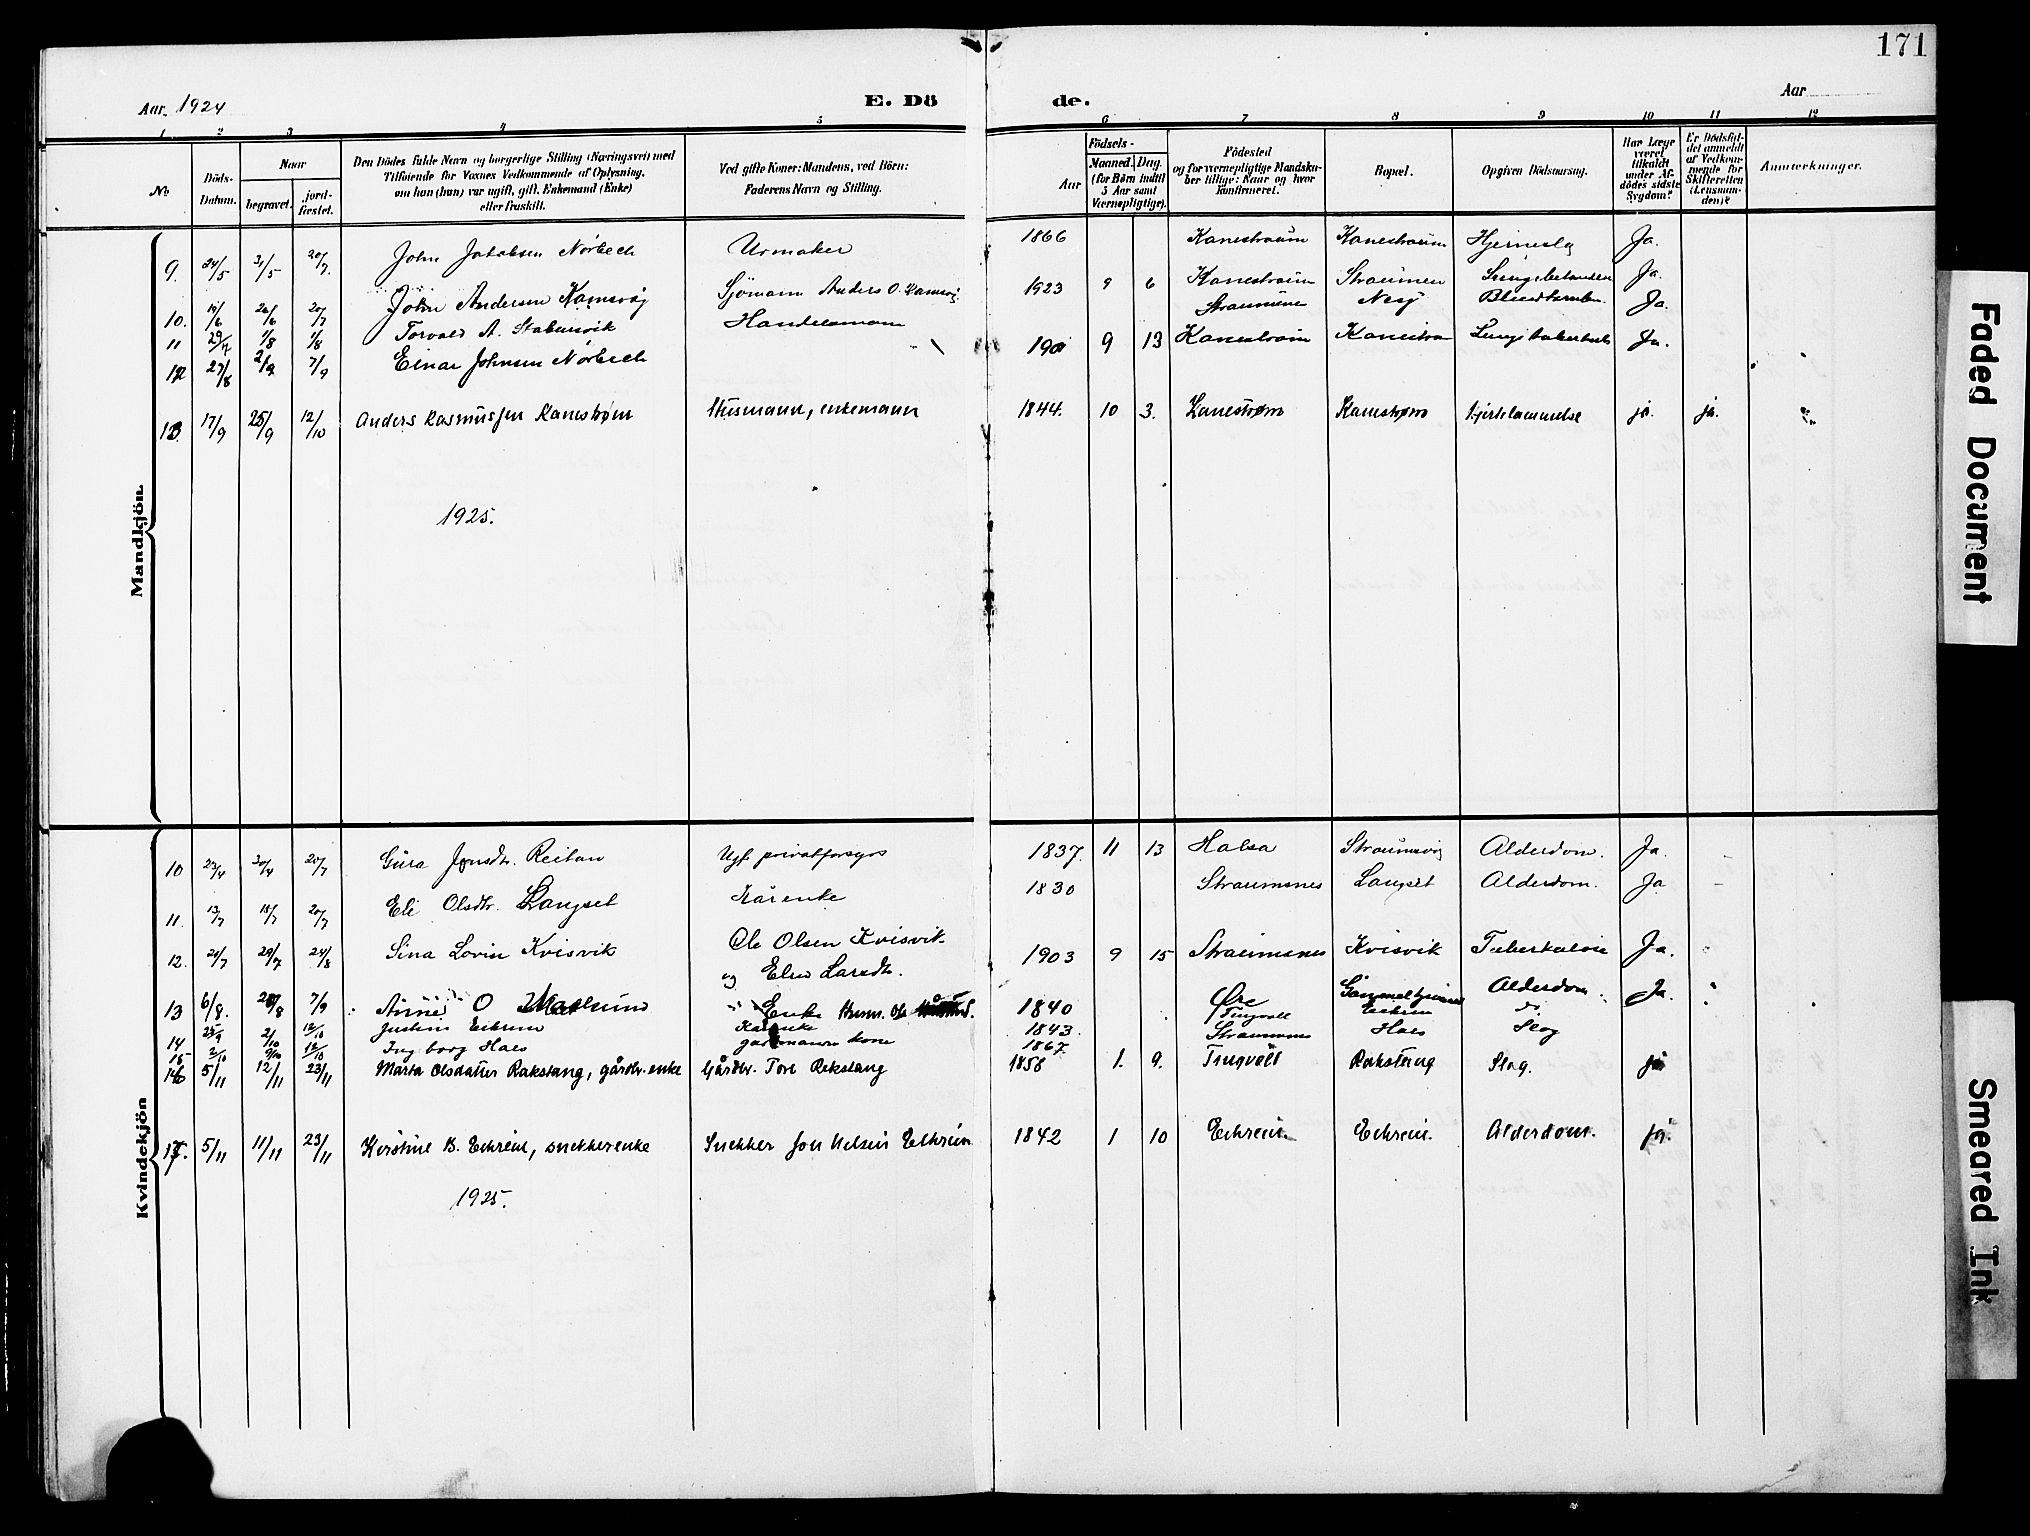 171
Aar 1924 E. Dö de. Aar
1 2 3 4 5 6 7 8 9 10 11 12
No
Döds-Datum.
Naar
begravet.
jord-fæstet.
Den Dödes fulde Navn og borgerlige Stilling (Næringsvei) med
Tilföiende for Voxnes Vedkommende af Oplysning,
om han (hun) var ugift, gift, Enkemand (Enke)
eller fraskilt.
Ved gifte Koner: Mandens, ved Börn:
Faderens Navn og Stilling.
Födsels-
Aar
Maaned. Dag.
(for Börn indtil
5 Aar samt
Værnepligtige).
Födested
og for værnepligtige Mandska-
ber tillige: Naar og hvor
konfirmeret.
Bopæl.
Opgiven Dödsaarsag.
Har Læge
været
tilkaldt
under Af-
dödes sidste
Sygdom?
Er Dödsfal-
det anmeldt
af Vedkom-
mende for
Skifteretten
(Lensman-
den)?
Anmærkninger.
Mandkjön.
9. 24/5 31/5 20/7. John Jakobsen Nörbech Urmaker 1866 Kanestraum Kanestraum Hjerneslag Ja.
10. 19/6 26/6 20/7 John Andersen Kamsvåg Sjömann Anders O. Kamsvåg 1923 9 6 Kanestraum Straumen Ja.
11 29/7 1/8 1/8 Torvald A. Stokersvik Handelsmann Straumsnes Ja.
12 27/8 2/9 7/9 Einar Johnsen Nörbech 190 9 13 Kanestraum Kanestrau Ja.
13. 17/9 25/9 12/10 Anders Rasmussen Kanestrøm Husmann, enkemann 1844. 10 3. Kanestrøm Kanestrøm Hjertelammelse ja. ja.
1925.
Kvindekjön
10 23/4 30/4 20/7 Gura Jonsdtr. Reitan Ugf. privatforsörg 1837. 11 13 Halsa Straumsvig Alderdom. Ja. -
11. 13/7 18/7 20/7 Eli Olsdtr. Langset Kårenke 1830 Straumsnes Langset Alderdom. Ja -
12. 20/7 29/7 24/8 Sina Lovise Kvisvik Ole Olsen Kvisvik 1903 9 15 Straumsnes Kvisvik Tuberkulose Ja.
og Elen Larsdtr.
13 6/8. 20/8 7/9 O Enke Husm. Ole 1840 Øre Alderdom Ja.
14 25/9 2/10 12/10 Justine Eikrem Kårenke 1843. Tingvoll Eikrem do
15 2/10 9/10 12/10 Ingborg Haes gårdmanns kone 1867 Straumsnes Haes Slag
16 5/11 12/11 23/11 Marta Olsdatter Rakstang, gårdbr. enke Gårdbr. Tore Rekstang 1858 1. 9. Tingvoll Rakstang Slag. ja
17. 5/11 11/11 23/11 Kirstine B. Eikrem, snekkerenke Snekker Jon Nelsen Eikrem 1842 1 10 Eikrem. Eikrem. Alderdom. ja.
1925.
Faded Document
Smeared Ink